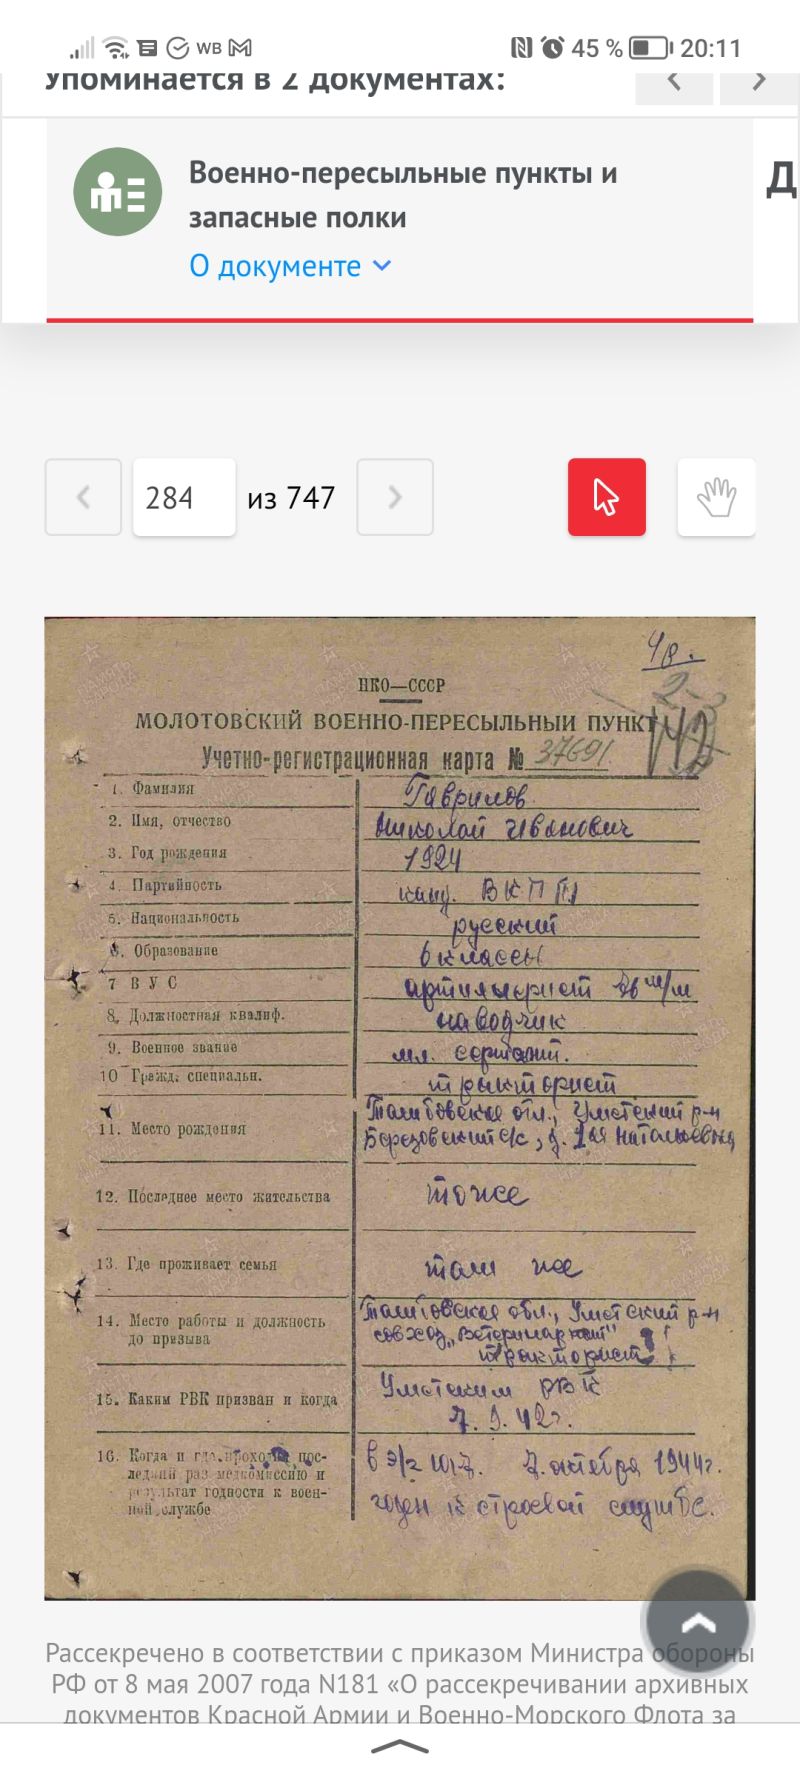 WB
45 %
20:11
Упоминается в 2 документах:
Военно-пересыльные пункты и
запасные полки
О документе
Д
284 из 747
4 в.
НКО—СССР
МОЛОТОВСКИЙ ВОЕННО-ПЕРЕСЫЛЬНЫЙ ПУНКТ
Учетно-регистрационная карта № 37691
1. Фамилия Гаврилов
2. Имя, отчество Николай Иванович
3. Год рождения 1924
4. Партийность канд. ВКП(б)
5. Национальность русский
6. Образование 6 классы
7 В У С артиллерист м/м
8. Должностная квалиф. наводчик
9. Военное звание мл. сержант.
10 Гражд. специальн. тракторист
11. Место рождения Тамбовская обл., Уметский р-н
Березовский с/с, д. 1ая Натальевка
12. Последнее место жительства то же
13. Где проживает семья там же
14. Место работы и должность
до призыва
Тамбовская обл., Уметский р-н
совхоз „Ветеринарный"
тракторист
15. Каким РВК призван и когда Уметским РВК
7. 9. 42 г.
16. Когда и где проходил пос-
ледний раз медкомиссию и
результат годности к воен-
ной службе
в э/г 7. октября 1944 г.
годен к строевой службе.
Рассекречено в соответствии с приказом Министра обороны
РФ от 8 мая 2007 года N181 «О рассекречивании архивных
документов Красной Армии и Военно-Морского Флота за